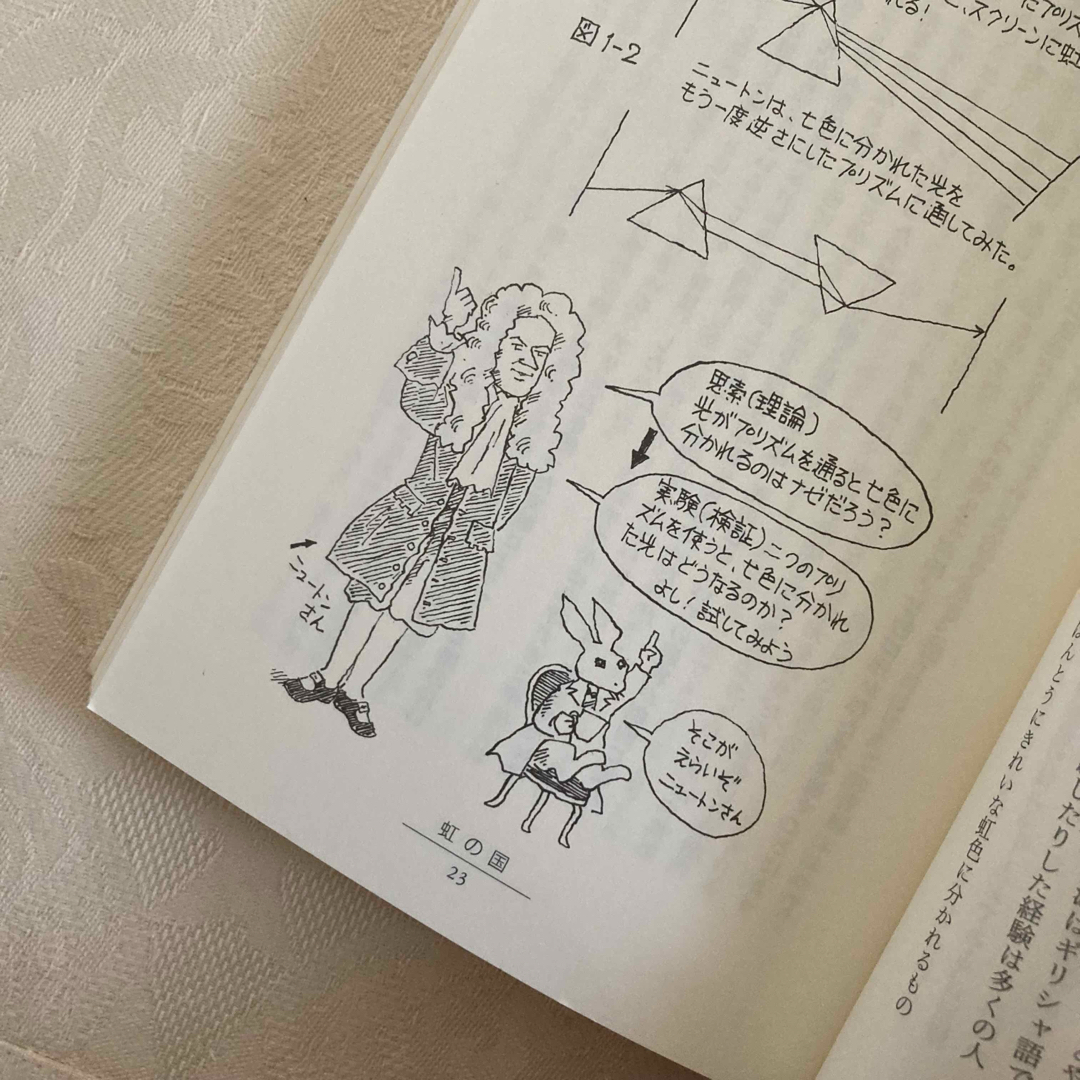 にプリズ
、スクリーンに虹
れる!
図1-2
ニュートンは、七色に分かれた光を
もう一度逆さにしたプリズムに通してみた。
思索(理論)
光がプリズムを通ると七色に
分かれるのはナゼだろう?
実験(検証)二つのプリ
ズムを使うと、七色に分かれ
た光はどうなるのか?
よし!試してみよう
ニュートン
さん
そこが
えらいぞ
ニュートンさん
虹の国
23
はギリシャ語で
したりした経験は多くの人
んとうにきれいな虹色に分かれるもの